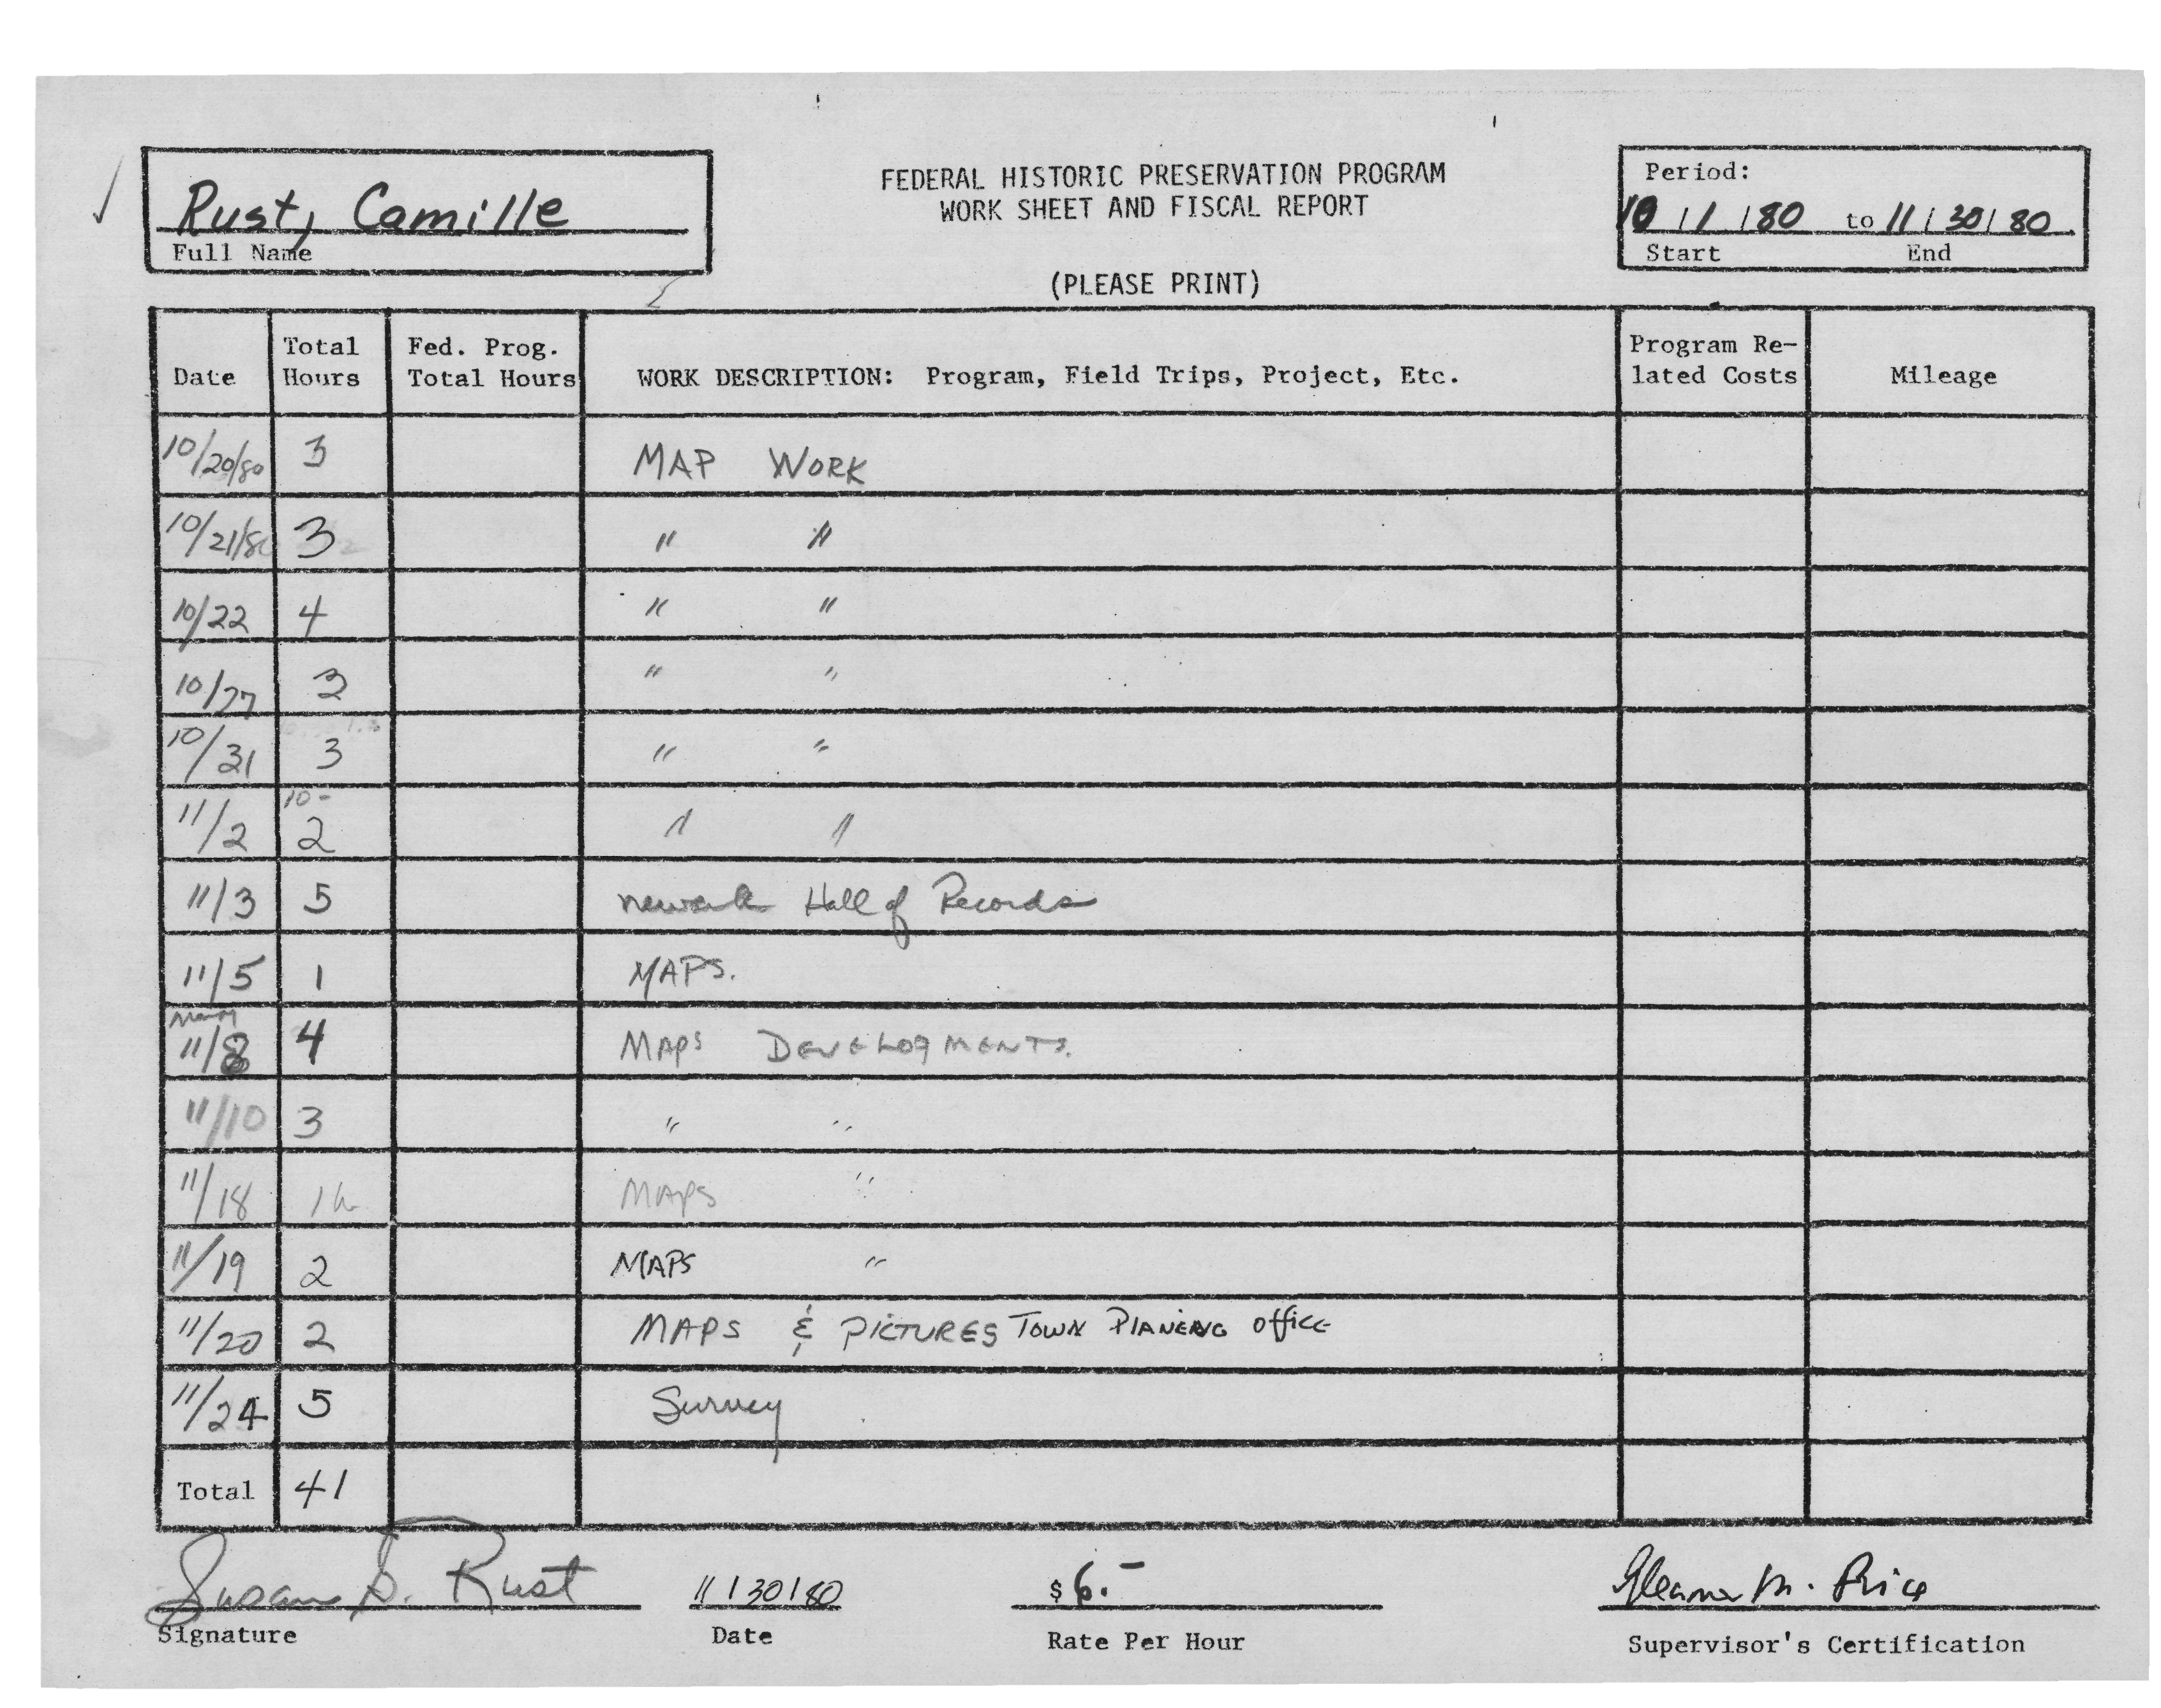 FEDERAL HISTORIC PRESERVATION PROGRAM
WORK SHEET AND FISCAL REPORT
(PLEASE PRINT)
Rust, Camille
Full Name
Period:
10/1/80 to 11/30/80
Start End
Date Total Hours Fed. Prog. Total Hours WORK DESCRIPTION: Program, Field Trips, Project, Etc. Program Re-lated Costs Mileage
10/20/80 3 MAP WORK
10/21/80 3 " "
10/22 4 " "
10/27 3 " "
10/31 3 " "
10-
11/2 2 " "
11/3 5 newark Hall of Records
11/5 1 MAPS.
11/8 4 MAPS DEVELOPMENTS.
11/10 3 " "
11/18 1h MAPS "
11/19 2 MAPS "
11/20 2 MAPS & PICTURES TOWN PLANEING Office
11/24 5 Survey
Total 41
Susan S. Rust 11/30/80 $6.- Eleanor M. Price
Signature Date Rate Per Hour Supervisor's Certification